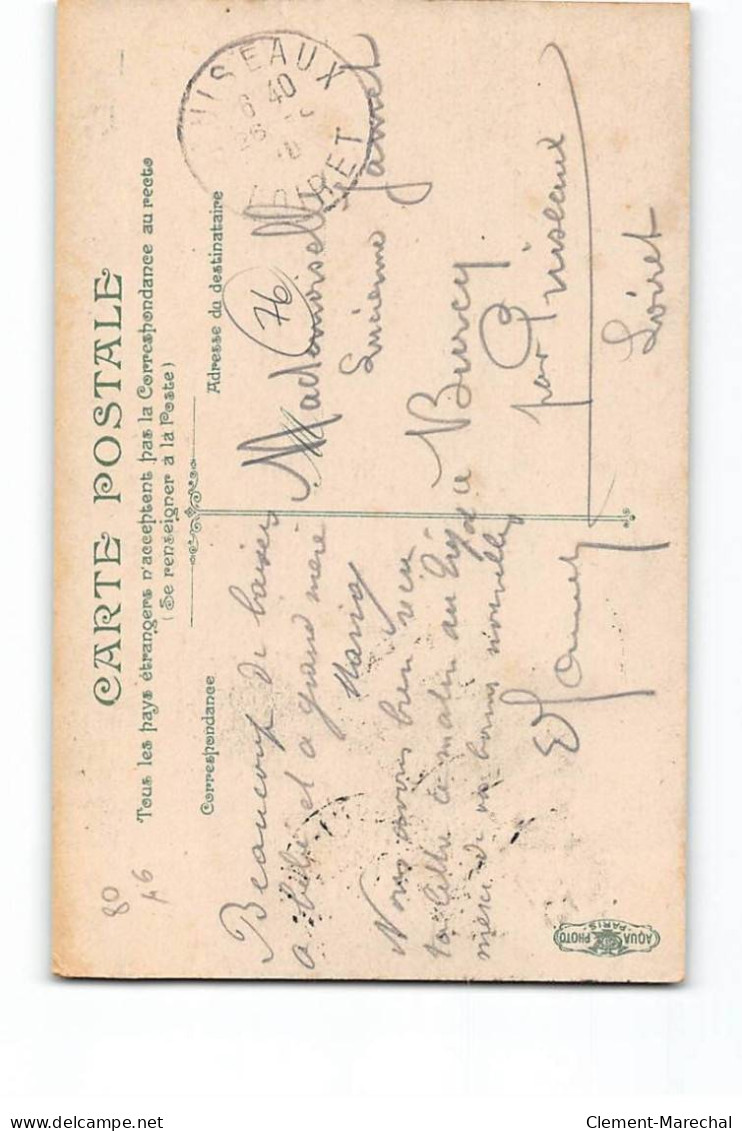 CARTE POSTALE
Tous les pays étrangers n'acceptent pas la Correspondance au recto
(Se renseigner à la Poste)
Correspondance
Adresse du destinataire
80
A6
76
PUISEAUX
6 40
26
LOIRET
Beaucoup de baisers
a bébé et a grand mere
Maria
Nous avons bien reçu
ta lettre ce matin au
merci de vos bonnes nouvelles
Mademoiselle
Lucienne Jannet
a Burcy
par Puiseaux
Loiret
AQUA PHOTO
PARIS
delcampe.net
Clement-Marechal